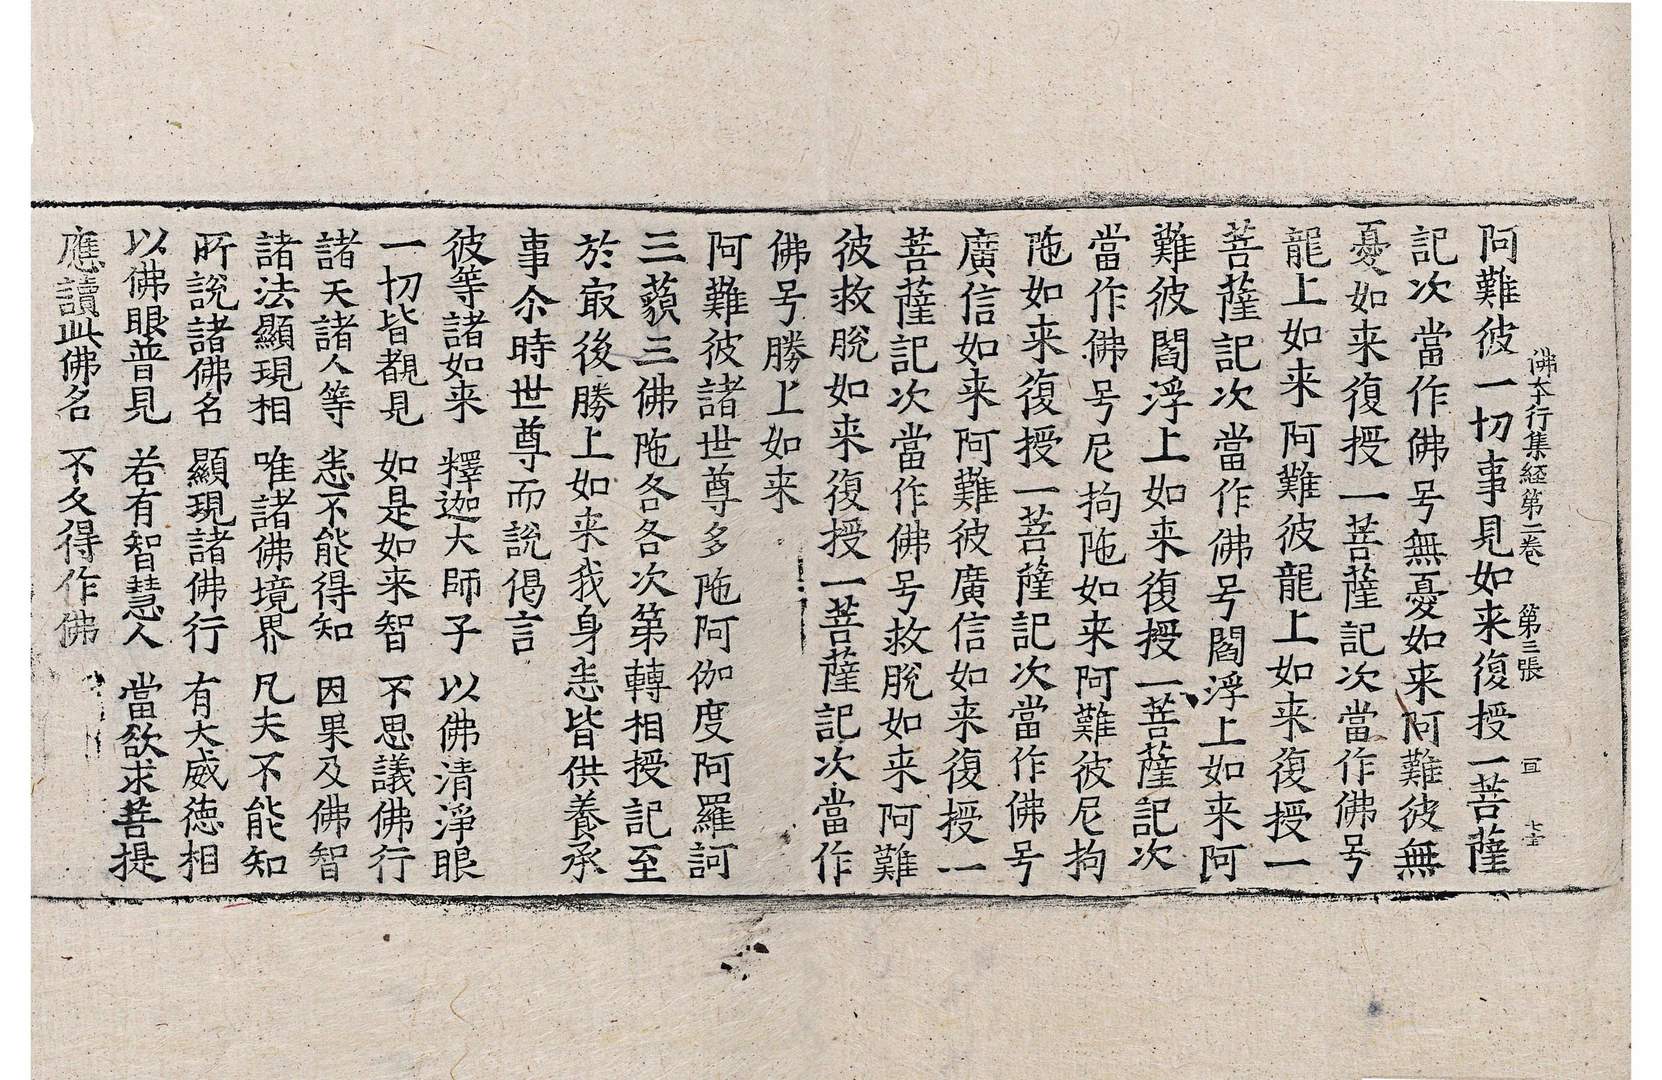 阿難彼一切事見如来復授一菩薩
佛夲行集経第二卷 第三張 𡇇
記次當作佛号無憂如来阿難彼無
憂如来復授一菩薩記次當作佛号
龍上如来阿難彼龍上如来復授一
菩薩記次當作佛号閻浮上如来阿
難彼閻浮上如来復授一菩薩記次
當作佛号尼拘陁如来阿難彼尼拘
陁如来復授一菩薩記次當作佛号
廣信如来阿難彼廣信如来復授一
菩薩記次當作佛号救脫如来阿難
彼救脫如来復授一菩薩記次當作
佛号勝上如来
阿難彼諸世尊多陁阿伽度阿羅訶
三藐三佛陁各各次第轉相授記至
於㝡後勝上如来我身悉皆供養承
事尒時世尊而說偈言
彼等諸如来 釋迦大師子 以佛清淨眼
一切皆覩見 如是如来智 不思議佛行
諸天諸人等 悉不能得知 因果及佛智
諸法顯現相 唯諸佛境界 凡夫不能知
所說諸佛名 顯現諸佛行 有大威徳相
以佛眼普見 若有智慧人 當欲求菩提
應讀此佛名 不久得作佛